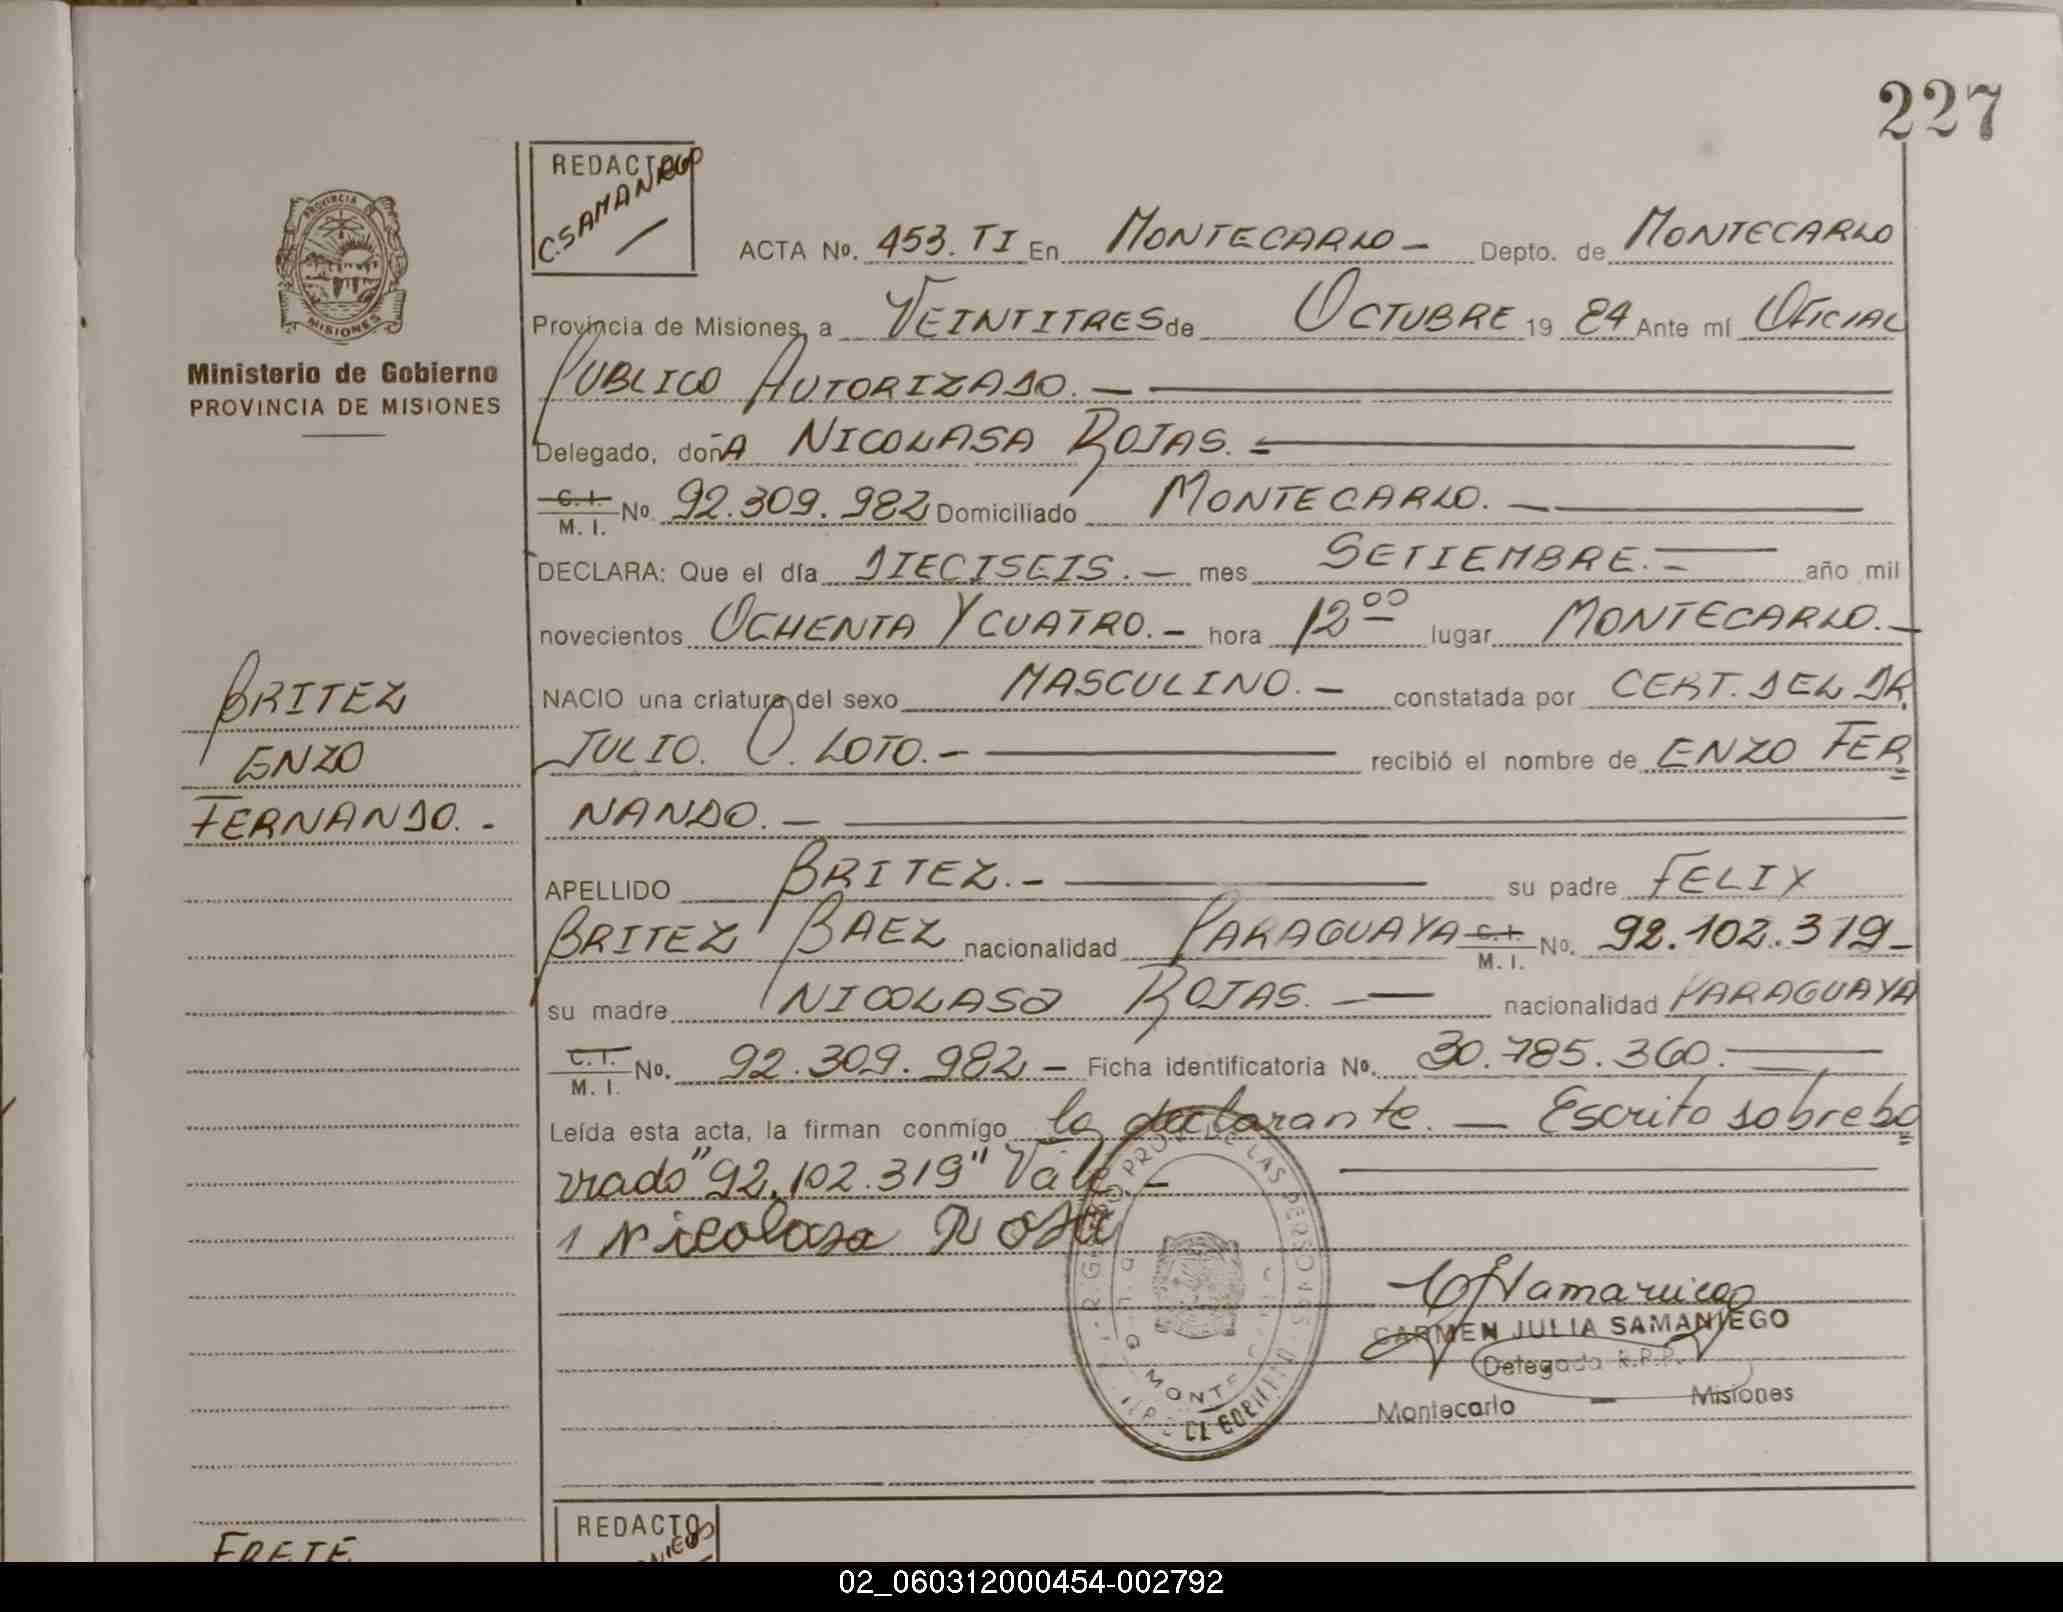 227
REDACTO
C. SAMANIEGO
ACTA No. 453. TI En MONTECARLO - Depto. de MONTECARLO
Provincia de Misiones, a VEINTITRES de OCTUBRE 19 84 Ante mí OFICIAL
PUBLICO AUTORIZADO. -
Delegado, doñA NICOLASA ROJAS. -
C.I. M. I. No. 92.309.982 Domiciliado MONTECARLO. -
DECLARA: Que el día DIECISEIS. - mes SETIEMBRE. - año mil
novecientos OCHENTA Y CUATRO. - hora 12 00 lugar MONTECARLO. -
NACIO una criatura del sexo MASCULINO. - constatada por CERT. DEL DR.
JULIO. O. LOTO. - recibió el nombre de ENZO FER=
NANDO. -
APELLIDO BRITEZ. - su padre FELIX
BRITEZ BAEZ nacionalidad PARAGUAYA C.I. M. I. No. 92.102.319-
su madre NICOLASA ROJAS. - nacionalidad PARAGUAYA
C.I. M. I. No. 92.309.982 - Ficha identificatoria No. 30.785.360. -
Leída esta acta, la firman conmigo la declarante. - Escrito sobrebo=
rrado "92.102.319" Vale. -
Nicolasa Rosa
CARMEN JULIA SAMANIEGO
Delegada R.P.P.
Montecarlo - Misiones
PROVINCIA DE
MISIONES
Ministerio de Gobierno
PROVINCIA DE MISIONES
BRITEZ
ENZO
FERNANDO. -
FRETE
REDACTO
02_060312000454-002792